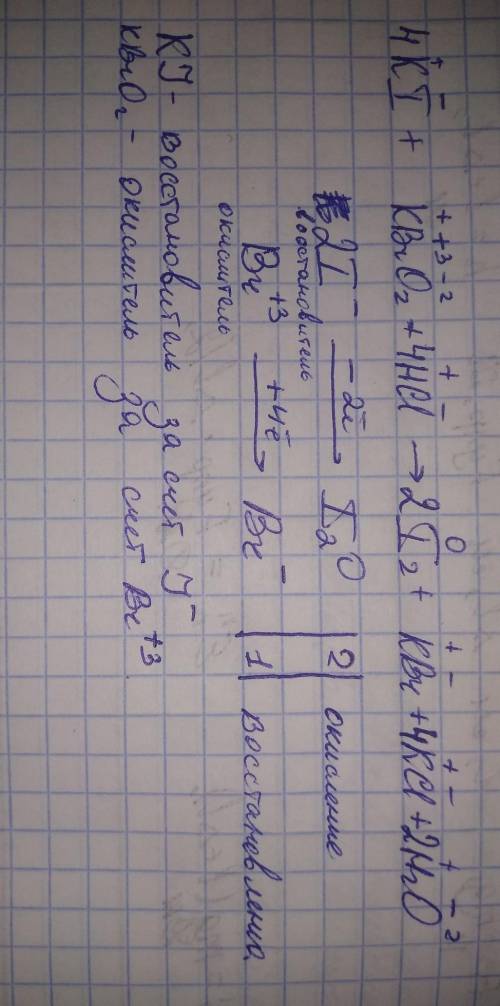 4K⁺I⁻ + K⁺Br⁺³O₂⁻² + 4H⁺Cl⁻ → 2I₂⁰ + K⁺Br⁻ + 4K⁺Cl⁻ + 2H₂⁺O⁻²
2I⁻ —−2ē→ I₂⁰ | 2 | окисление
восстановитель
Br⁺³ —+4ē→ Br⁻ | 1 | восстановления
окислитель
KJ - восстановитель за счет J⁻
KBrO₂ - окислитель за счет Br⁺³